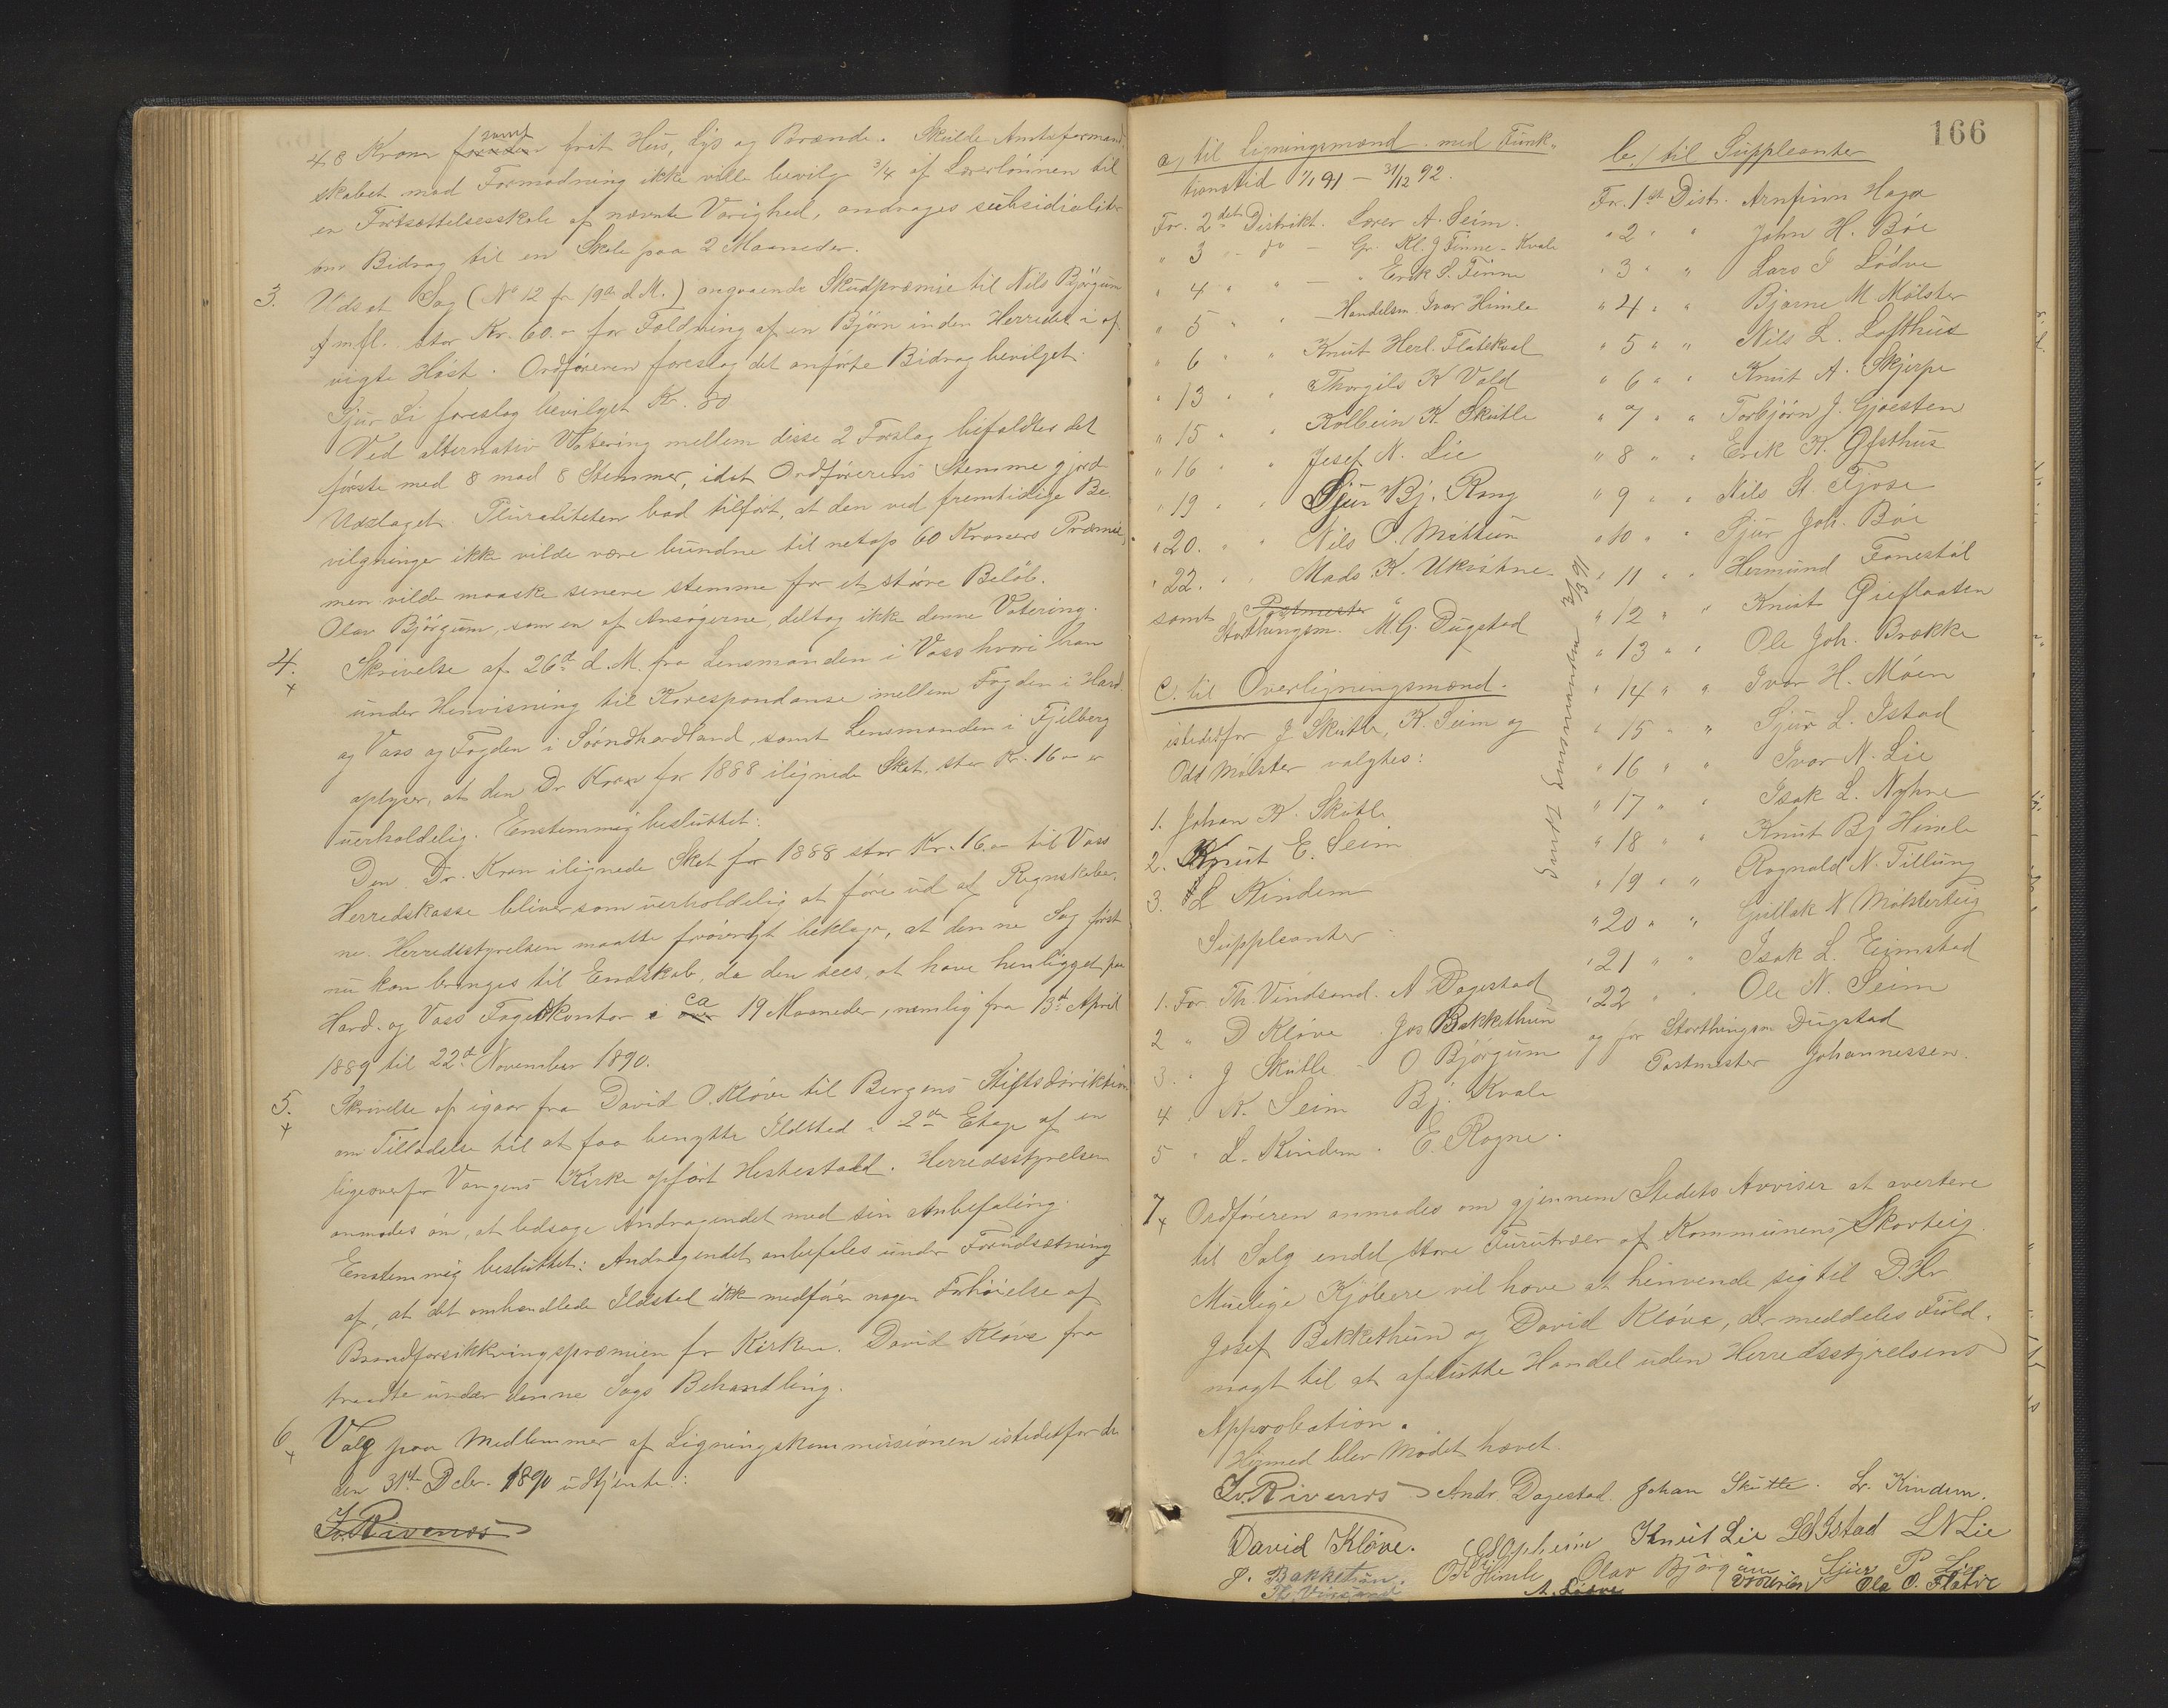 48 Kroner samt frit Hus, Lys og Brænde. Skulde Amtsformand
skabet mod Formodning ikke ville bevilge 3/4 af Lærerlønnen til
en Fortsættelsesskole af nævnte Varighed, andrages subsidialiter
om Bidrag til en Skole paa 2 Maaneder.
3. Udsat Sag (No 12 fra 19de d.M.) angaaende Skudpræmie til Nils Bjørgum
m fl. stor Kr. 60.- for Fældning af en Bjørn inden Herredet i af-
vigte Høst. Ordføreren foreslog det anførte Bidrag bevilget.
Sjur Li foreslog bevilget Kr. 80
Ved alternativ Votering mellem disse 2 Forslag bifaldtes det
første med 8 mod 8 Stemmer, idet Ordførerens Stemme gjord
Udslaget. Pluraliteten bad tilført, at den ved fremtidige Be-
vilgninger ikke vilde være bundne til netop 60 Kroners Præmie,
men vilde maaske senere stemme for et større Beløb.
Olav Bjørgum, som en af Ansøgerne, deltog ikke denne Votering.
4. Skrivelse af 26de d.M. fra Lensmanden i Voss hvori han
under Henvisning til Korespondanse mellem Fogden i Hard.
og Voss og Fogden i Søndhordland, samt Lensmanden i Fjelberg
oplyser, at den Dr Kron for 1888 ilignede Skat, stor Kr. 16 - er
uerholdelig. Enstemmig besluttet:
Den Dr. Kron ilignede Skat for 1888 stor Kr. 16.- til Voss
Herredskasse bliver som uerholdelig at føre ud af Regnskaber-
ne. Herredsstyrelsen maatte forøvrigt beklage, at denne Sag først
nu kan bringes til Endskab, da den sees at have henligget paa
Hard. og Voss Fogedkontor i ca 19 Maaneder, nemlig fra 13de April
1889 til 22de November 1890.
5. Skrivelse af igaar fra David O. Kløve til Bergens Stiftsdirektion
om Tilladelse til at faa benytte Ildsted i 2den Etage af en
ligeoverfor Vangens Kirke opført Hestestald. Herredsstyrelsen
anmodes om, at ledsage Andragendet med sin Anbefaling.
Enstemmig besluttet: Andragendet anbefales under Forudsætning
af, at det omhandlede Ildsted ikke medfører nogen Forhøielse af
Brandforsikkringspræmien for Kirken. David Kløve fra
traadte under denne Sags Behandling.
6 Valg paa Medlemmer af Ligningskommissionen istedetfor de
den 31te Dcbr. 1890 udtjente:
Iv. Rivenes
166
a, til Ligningsmænd med Funk-
tionstid 1/1 91 - 31/12 92.
For 2det Distrikt. Lærer A. Seim.
" 3 " do - Gr. Kl. J Finne - Kvale
" 4 " " - " Erik S. Finne
" 5 " " - Handelsm. Ivar Himle
" 6 " " Knut Herl. Flatekval
" 13 " " Thorgils K Vold
" 15 " " Kolbein K. Skutle
" 16 " " Josef N. Lie
" 19 " " Sjur Bj. Rong
" 20. " " Nils O. Mittun
" 22. " " Mads K. Ukvitne
samt Postmester
Storthingsm. M. G. Dugstad
C. til Overligningsmænd.
istedetfor J Skutle, K. Seim og
Odd Mølster valgtes:
1. Johan K. Skutle
2. Knut E. Seim
3. L Kindem
Suppleanter
1. For Th. Vindsand. A Dagestad
2 " D Kløve Jos Bakkethun
3. " J Skutle - O Bjørgum
4 " K. Seim Bj. Kvale
5 " L. Kindem. E. Rogne.
b./ til Suppleanter
For 1ste Distr. Arnfinn Haga
" 2 " " John H. Bøe
" 3 " " Lars I Lødve
" 4 " " Bjarne M Mølster
" 5 " " Nils L. Lofthus
" 6 " " Knut A. Skjerpe
" 7 " " Torbjørn J. Gjosten
" 8 " " Erik K. Afsthus
" 9 " " Nils St. Tjose
" 10 " " Sjur Joh. Bøe
" 11 " " Hermund Fonestøl
" 12 " " Knut Grieflaaten
" 13 " " Ole Joh. Brække
" 14 " " Ivar H. Møen
" 15 " " Sjur L. Istad
" 16 " " Ivar N. Lie
" 17 " " Isak L. Nyhne
" 18 " " Knut Bj Himle
" 19 " " Ragnald N. Tillung
" 20 " " Gullak N Mølsterteig
" 21 " " Isak L. Eimstad
" 22 " " Ole N. Seim
og for Storthingsm Dugstad
Postmester Johannessen.
Sendt Lensmanden 3/3 91
7 Ordføreren anmodes om gjennem Stedets Avviser at avertere
til Salg endel store Furutræer af Kommunens Skovteig.
Muelige Kjøbere vil have at henvende sig til D.Hr
Josef Bakkethun og David Kløve, der meddeles Fuld-
magt til at afslutte Handel uden Herredsstyrelsens
Approbation.
Hermed blev Mødet hævet.
Iv. Rivenes Andr. Dagestad. Johan Skutle. L. Kindem.
David Kløve. Opheim Knut Lie Istad L N Lie
J. Bakketun. Himle Olav Bjørgum Sjur P. Lie
Th. Vinsand A. Lødve Ole O. Flatve